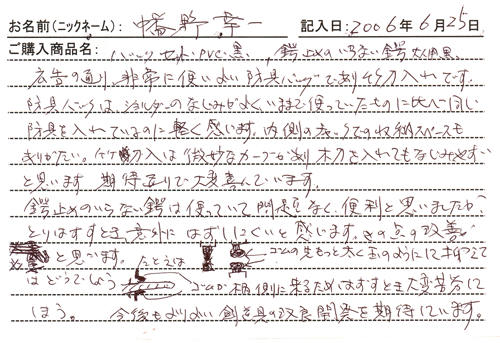 お名前(ニックネーム): 幡野 幸一 記入日:2006年6月25日
ご購入商品名: バッグセット PVC 黒、鍔止めのいらない鍔 大用黒
広告の通り、非常に使いよい防具バッグであり竹刀入れです。
防具バッグは、ショルダーのなじみがよくいままで使っていたものに比べ同じ
防具を入れているのに軽く感います。内側の 収納スペースも
ありがたい。竹刀入は微妙なカーブがあり木刀を入れてもなじみやすい
と思います 期待通りで大変喜んでいます。
鍔止めのいらない鍔は使っていて問題なく、便利と思いましたが、
とりはずすとき、意外にはずしにくいと感います。その点の改善
と思います。たとえば ゴムの先もっと太く玉のようにして
はどうでしょう ゴムが柄側に来るためはずすとき大変苦労して
ほう。 今後もよりよい剣道具の改良開発を期待しています。